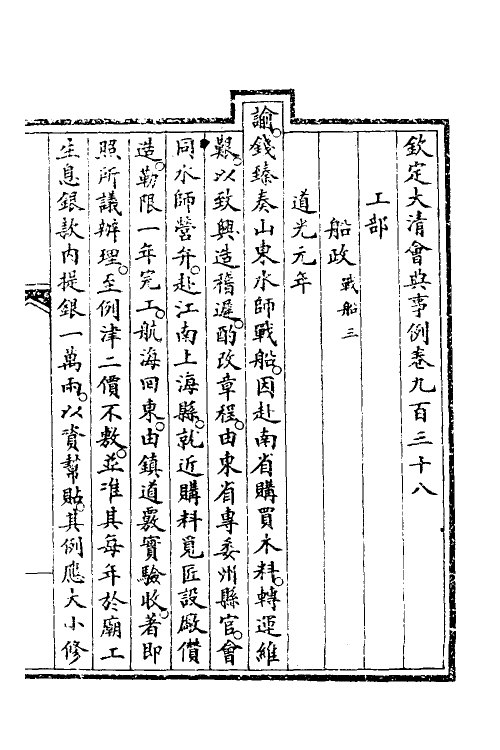 欽定大清會典事例卷九百三十八
工部
船政戰船三
道光元年
諭。錢臻奏山東水師戰船。因赴南省購買木料。轉運維
艱。以致興造稽遲。酌改章程。由東省專委州縣官。會
同水師營弁。赴江南上海縣。就近購料覓匠設廠償
造。勒限一年完工。航海回東。由鎮道覈實驗收。著即
照所議辦理。至例津二價不敷。並准其每年於廟工
生息銀款內提銀一萬兩。以資幫貼。其例應大小修